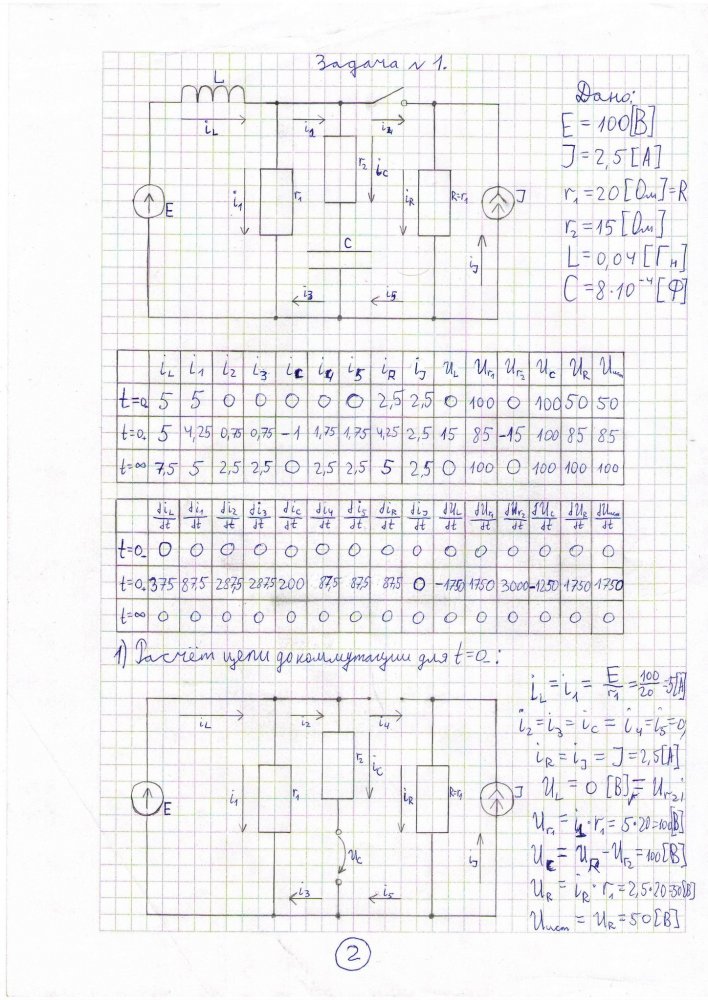 Задача №1.
L
Дано:
iL i2 i4
E = 100[В]
J = 2,5[А]
r1 = 20[Ом] = R
r2 = 15[Ом]
L = 0,04[Гн]
C = 8·10⁻⁴[Ф]
E i1 r1 r2 iC iR R=r1 J
C
i3 i5 iJ
iL i1 i2 i3 iC i4 i5 iR iJ UL Ur1 Ur2 UC UR Uист
t=0- 5 5 0 0 0 0 0 2,5 2,5 0 100 0 100 50 50
t=0+ 5 4,25 0,75 0,75 -1 1,75 1,75 4,25 2,5 15 85 -15 100 85 85
t=∞ 7,5 5 2,5 2,5 0 2,5 2,5 5 2,5 0 100 0 100 100 100
diL/dt di1/dt di2/dt di3/dt diC/dt di4/dt di5/dt diR/dt diJ/dt dUL/dt dUr1/dt dUr2/dt dUC/dt dUR/dt dUист/dt
t=0- 0 0 0 0 0 0 0 0 0 0 0 0 0 0 0
t=0+ 375 87,5 287,5 287,5 200 87,5 87,5 87,5 0 -1750 1750 3000 -1250 1750 1750
t=∞ 0 0 0 0 0 0 0 0 0 0 0 0 0 0 0
1) Расчёт цепи до коммутации для t=0-:
iL i2 i4
E i1 r1 r2 iC iR R=r1 J
UC
i3 i5 iJ
iL = i1 = E/r1 = 100/20 = 5[А]
i2 = i3 = iC = i4 = i5 = 0;
iR = iJ = J = 2,5[А]
UL = 0 [В] = Ur2;
Ur1 = i1·r1 = 5·20 = 100[В]
UC = UR - Ur2 = 100[В]
UR = iR·r1 = 2,5·20 = 50[В]
Uист = UR = 50[В]
2